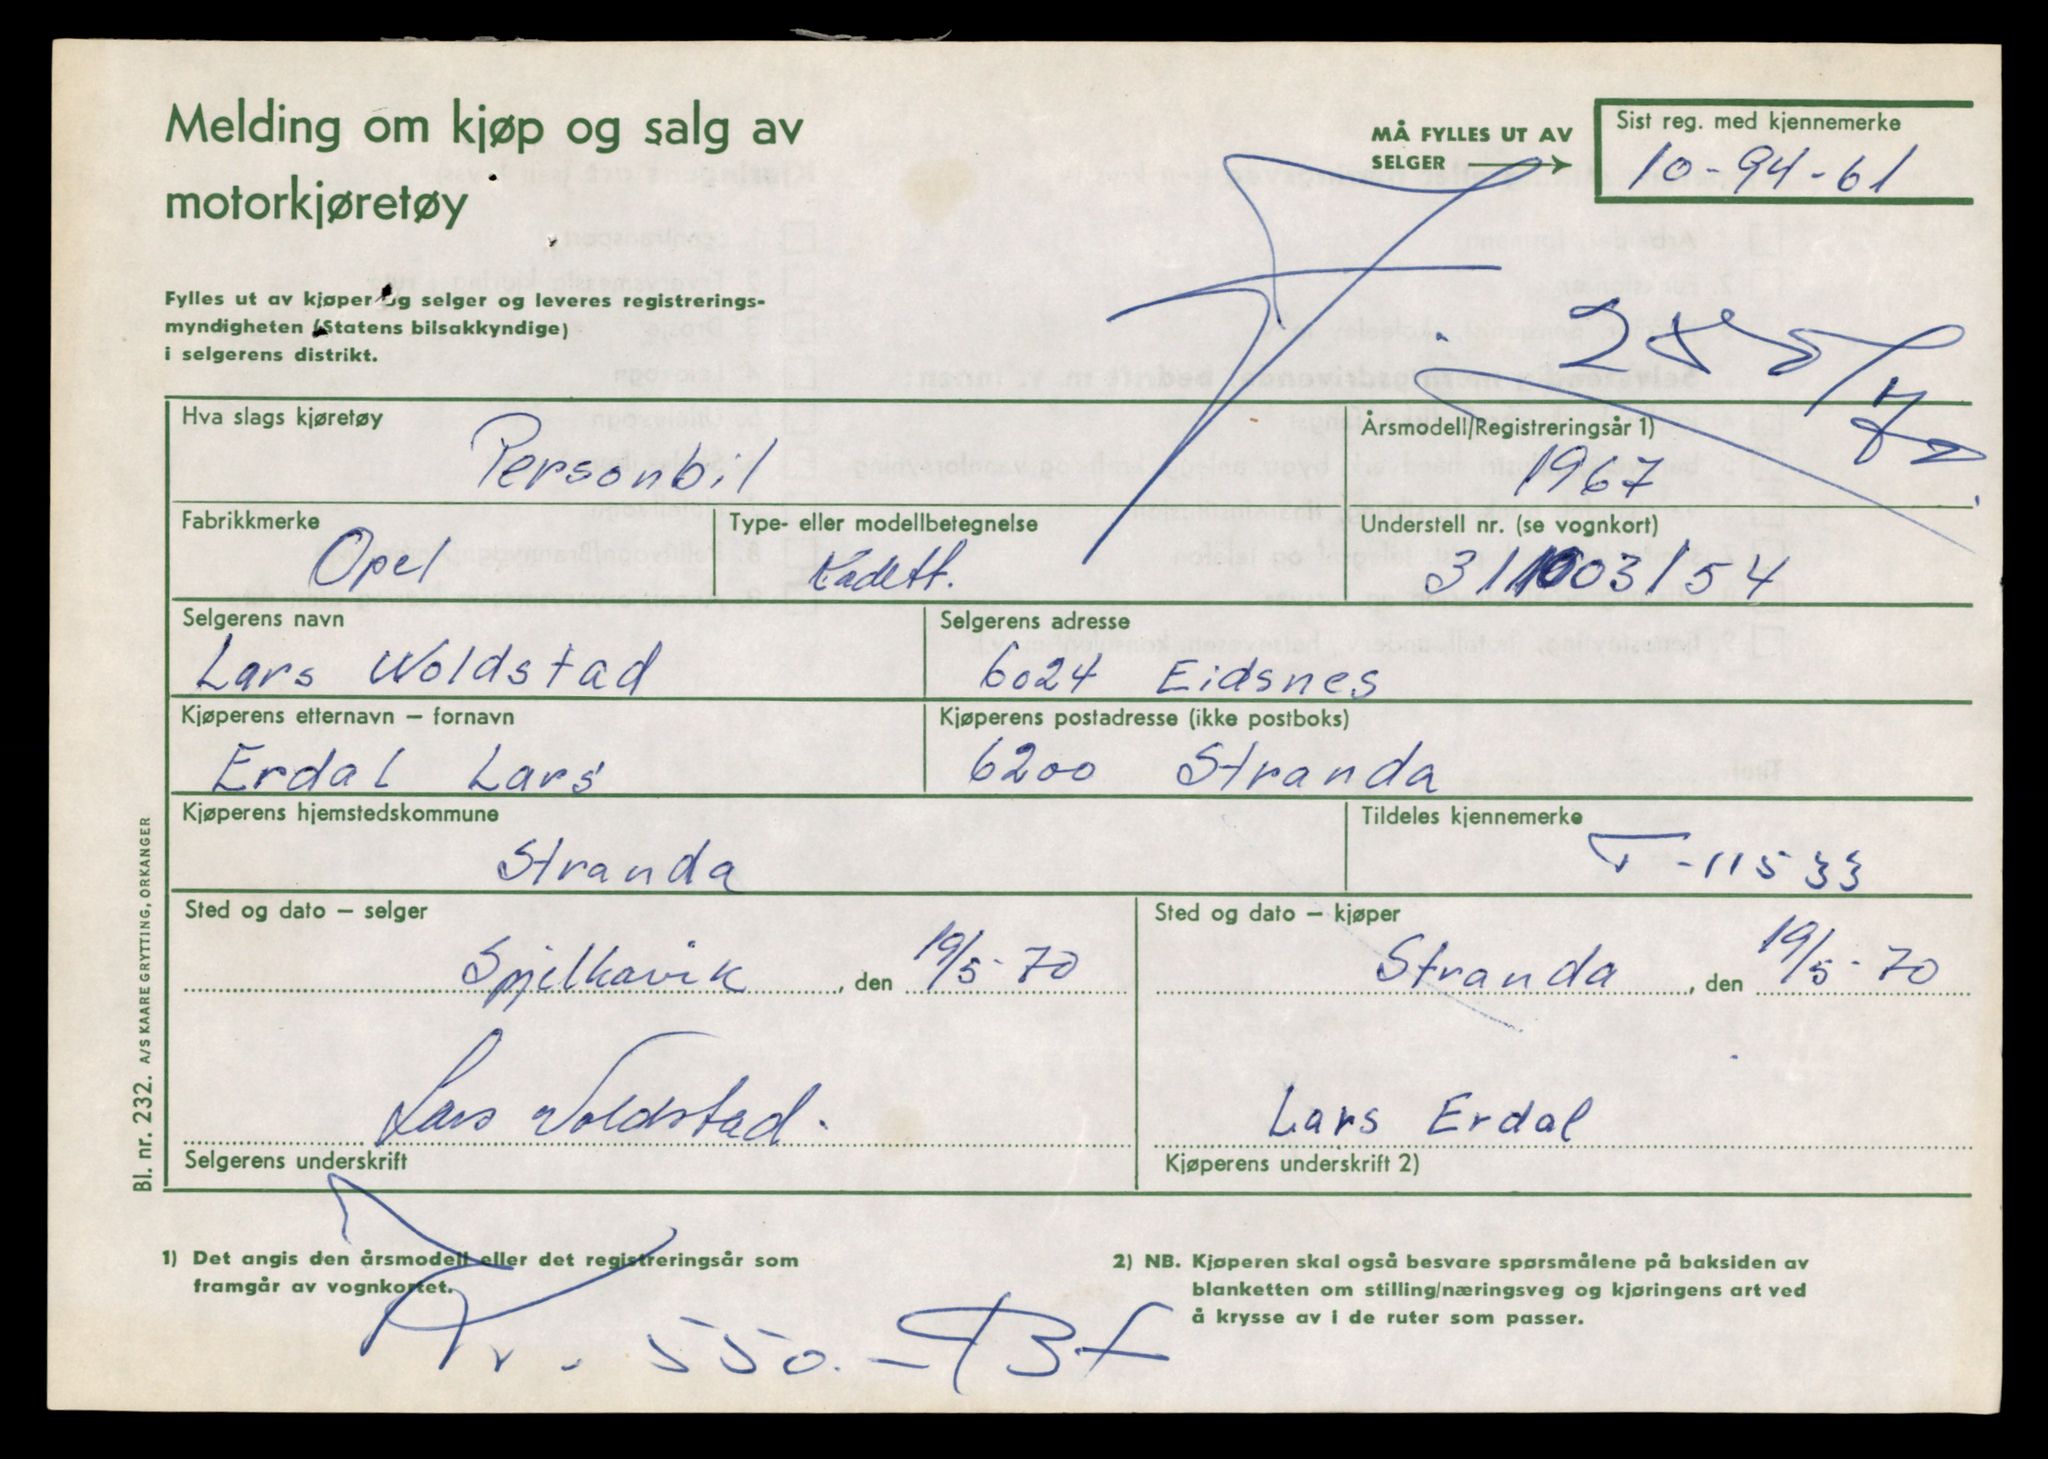 Melding om kjøp og salg av
motorkjøretøy
MÅ FYLLES UT AV
SELGER
Sist reg. med kjennemerke
10-94-61
Fylles ut av kjøper og selger og leveres registrerings-
myndigheten (Statens bilsakkyndige)
i selgerens distrikt.
25/5/70
Hva slags kjøretøy
Personbil
Årsmodell/Registreringsår 1)
1967
Fabrikkmerke
Opel
Type- eller modellbetegnelse
Kadett.
Understell nr. (se vognkort)
Selgerens navn
Lars Woldstad
Selgerens adresse
6024 Eidsnes
Kjøperens etternavn – fornavn
Erdal Lars
Kjøperens postadresse (ikke postboks)
6200 Stranda
Kjøperens hjemstedskommune
Stranda
Tildeles kjennemerke
T-11533
Sted og dato – selger
Spjelkavik, den 19/5-70
Sted og dato – kjøper
Stranda, den 19/5-70
Lars Woldstad.
Selgerens underskrift
Lars Erdal
Kjøperens underskrift 2)
1) Det angis den årsmodell eller det registreringsår som
framgår av vognkortet.
2) NB. Kjøperen skal også besvare spørsmålene på baksiden av
blanketten om stilling/næringsveg og kjøringens art ved
å krysse av i de ruter som passer.
Kr. 550.-
Bl. nr. 232. A/S KAARE GRYTTING, ORKANGER